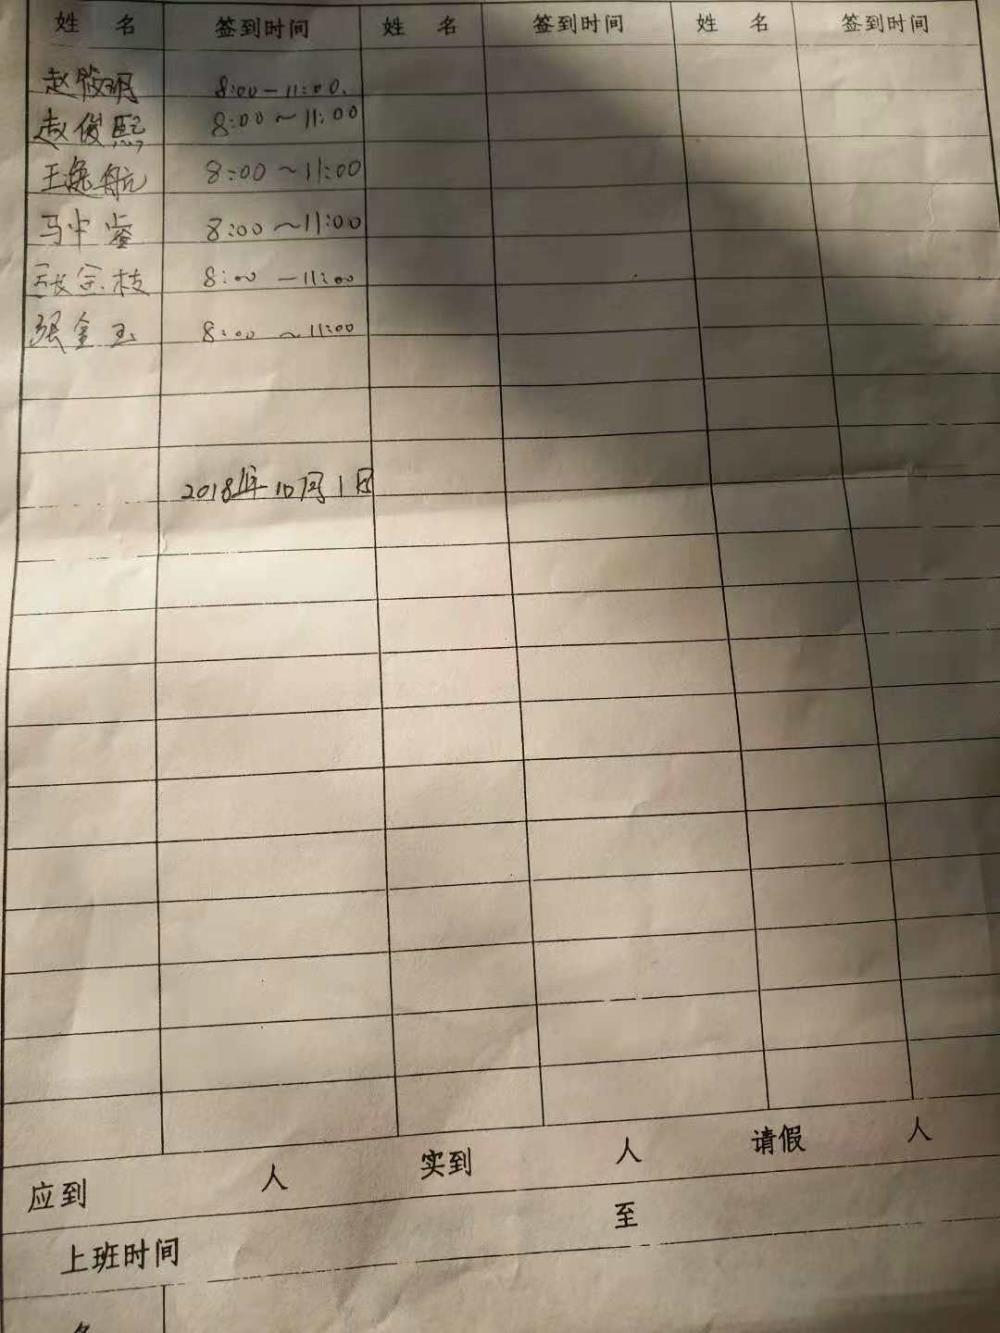 姓 名 签到时间 姓 名 签到时间 姓 名 签到时间
赵筱玥 8:00-11:00.
赵俊熙 8:00~11:00
王逸航 8:00~11:00
马中鉴 8:00~11:00
张宗枝 8:00-11:00
张金玉 8:00~11:00
2018年10月1日
应到 人 实到 人 请假 人
上班时间 至